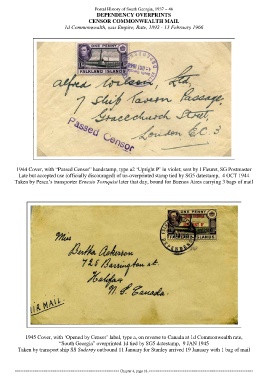 Postal History of South Georgia, 1937 – 46
DEPENDENCY OVERPRINTS
CENSOR COMMONWEALTH MAIL
1d Commonwealth, was Empire, Rate, 1892 - 13 February 1966
ONE PENNY
FALKLAND ISLANDS
Alfred Wilson, Ltd,
7 Ship Tavern Passage,
Gracechurch Street,
London E.C.3
Passed Censor
1944 Cover, with "Passed Censor" handstamp, type a2 'Upright P' in violet, sent by I Fleuret, SG Postmaster
Late but accepted use (officially discouraged) of un-overprinted stamp tied by SG5 datestamp, 4 OCT 1944
Taken by Pesca's transporter Ernesto Tornquist later that day, bound for Buenos Aires carrying 3 bags of mail
ONE PENNY
Miss
Bertha Ackerson
725 Barrington st.
Halifax
N.S. Canada.
AIR MAIL
1945 Cover, with 'Opened by Censor' label, type a, on reverse to Canada at 1d Commonwealth rate,
"South Georgia" overprinted 1d tied by SG5 datestamp, 9 JAN 1945
Taken by transport ship SS Suderoy outbound 11 January for Stanley arrived 19 January with 1 bag of mail